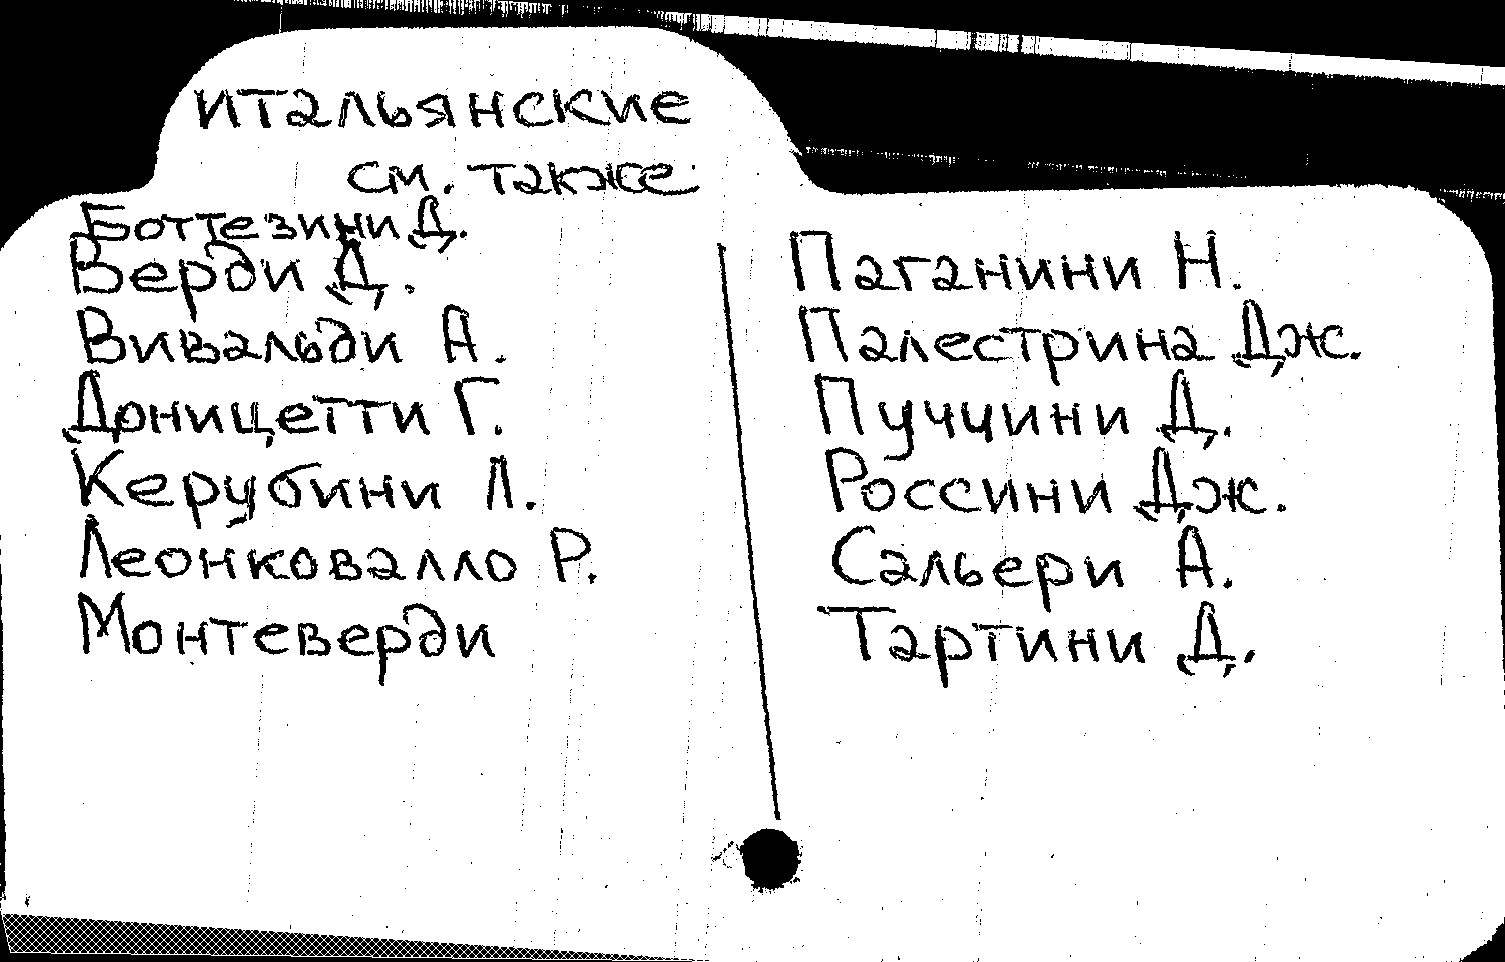 итальянские
см. также:
Боттезини Д.
Верди Д.
Вивальди А.
Доницетти Г.
Керубини Л.
Леонковалло Р.
Монтеверди
Паганини Н.
Палестрина Дж.
Пуччини Д.
Россини Дж.
Сальери А.
Тартини Д.